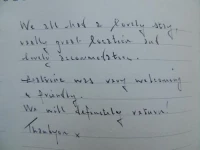 We all had a lovely stay,
really great location and
lovely accommodation.
was very welcoming
& friendly.
We will definitely return!
Thankyou x